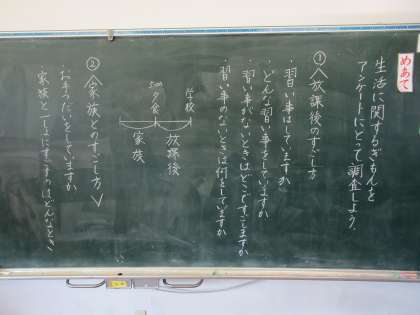 めあて
生活に関するぎもんを
アンケートにとって調査しよう。
①〈放課後のすごし方
・習い事はしていますか
・どんな習い事をしていますか
・習い事がないときはどこですごしますか
・習い事のないときは何をしていますか
学校
夕食
放課後
家族
②〈家族とのすごし方〉
・お手つだいをしていますか
・家族と一しょにすごすのはどんなとき